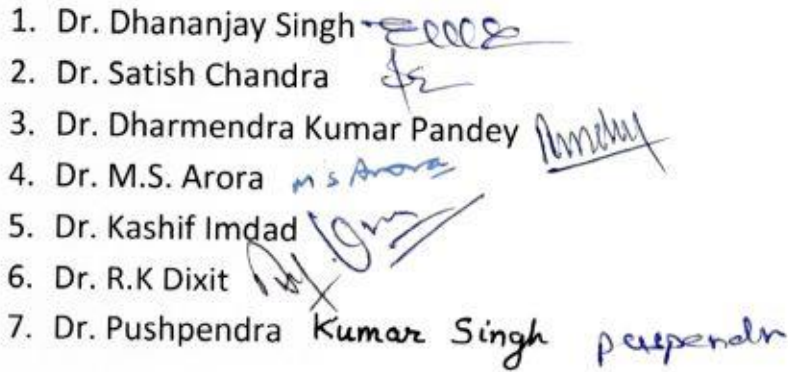 1. Dr. Dhananjay Singh
2. Dr. Satish Chandra
3. Dr. Dharmendra Kumar Pandey
4. Dr. M.S. Arora M S Arora
5. Dr. Kashif Imdad
6. Dr. R.K Dixit
7. Dr. Pushpendra Kumar Singh